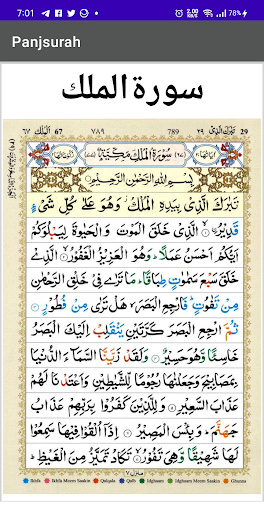 7:01
78%
Panjsurah
سورة الملك
الملك ٦٧ 67
٧٨٩
789
٢٩ تبٰرك الذی 29
سُوْرَةُ الْمُلْكِ مَكِّيَّةٌ
بِسْمِ اللّٰهِ الرَّحْمٰنِ الرَّحِيْمِ
تَبٰرَكَ الَّذِيْ بِيَدِهِ الْمُلْكُ وَهُوَ عَلٰى كُلِّ شَيْءٍ
قَدِيْرُ ۙ﴿١﴾ الَّذِيْ خَلَقَ الْمَوْتَ وَ الْحَيٰوةَ لِيَبْلُوَكُمْ
اَيُّكُمْ اَحْسَنُ عَمَلًا ؕ وَهُوَ الْعَزِيْزُ الْغَفُوْرُ ۙ﴿٢﴾ الَّذِيْ
خَلَقَ سَبْعَ سَمٰوٰتٍ طِبَاقًا ؕ مَا تَرٰى فِيْ خَلْقِ الرَّحْمٰنِ
مِنْ تَفٰوُتٍ ؕ فَارْجِعِ الْبَصَرَ ۙ هَلْ تَرٰى مِنْ فُطُوْرٍ ﴿٣﴾
ثُمَّ ارْجِعِ الْبَصَرَ كَرَّتَيْنِ يَنْقَلِبْ اِلَيْكَ الْبَصَرُ
خَاسِئًا وَّهُوَ حَسِيْرٌ ﴿٤﴾ وَلَقَدْ زَيَّنَّا السَّمَآءَ الدُّنْيَا
بِمَصَابِيْحَ وَجَعَلْنٰهَا رُجُوْمًا لِّلشَّيٰطِيْنِ وَاَعْتَدْنَا لَهُمْ
عَذَابَ السَّعِيْرِ ﴿٥﴾ وَلِلَّذِيْنَ كَفَرُوْا بِرَبِّهِمْ عَذَابُ
جَهَنَّمَ ؕ وَبِئْسَ الْمَصِيْرُ ﴿٦﴾ اِذَاۤ اُلْقُوْا فِيْهَا سَمِعُوْا
لَهَا شَهِيْقًا وَّهِيَ تَفُوْرُ ۙ﴿٧﴾ تَكَادُ تَمَيَّزُ مِنَ الْغَيْظِ ؕ
منزل ٧
Ikhfa Ikhfa Meem Saakin Qalqala Qalb Idghaam Idghaam Meem Saakin Ghunna